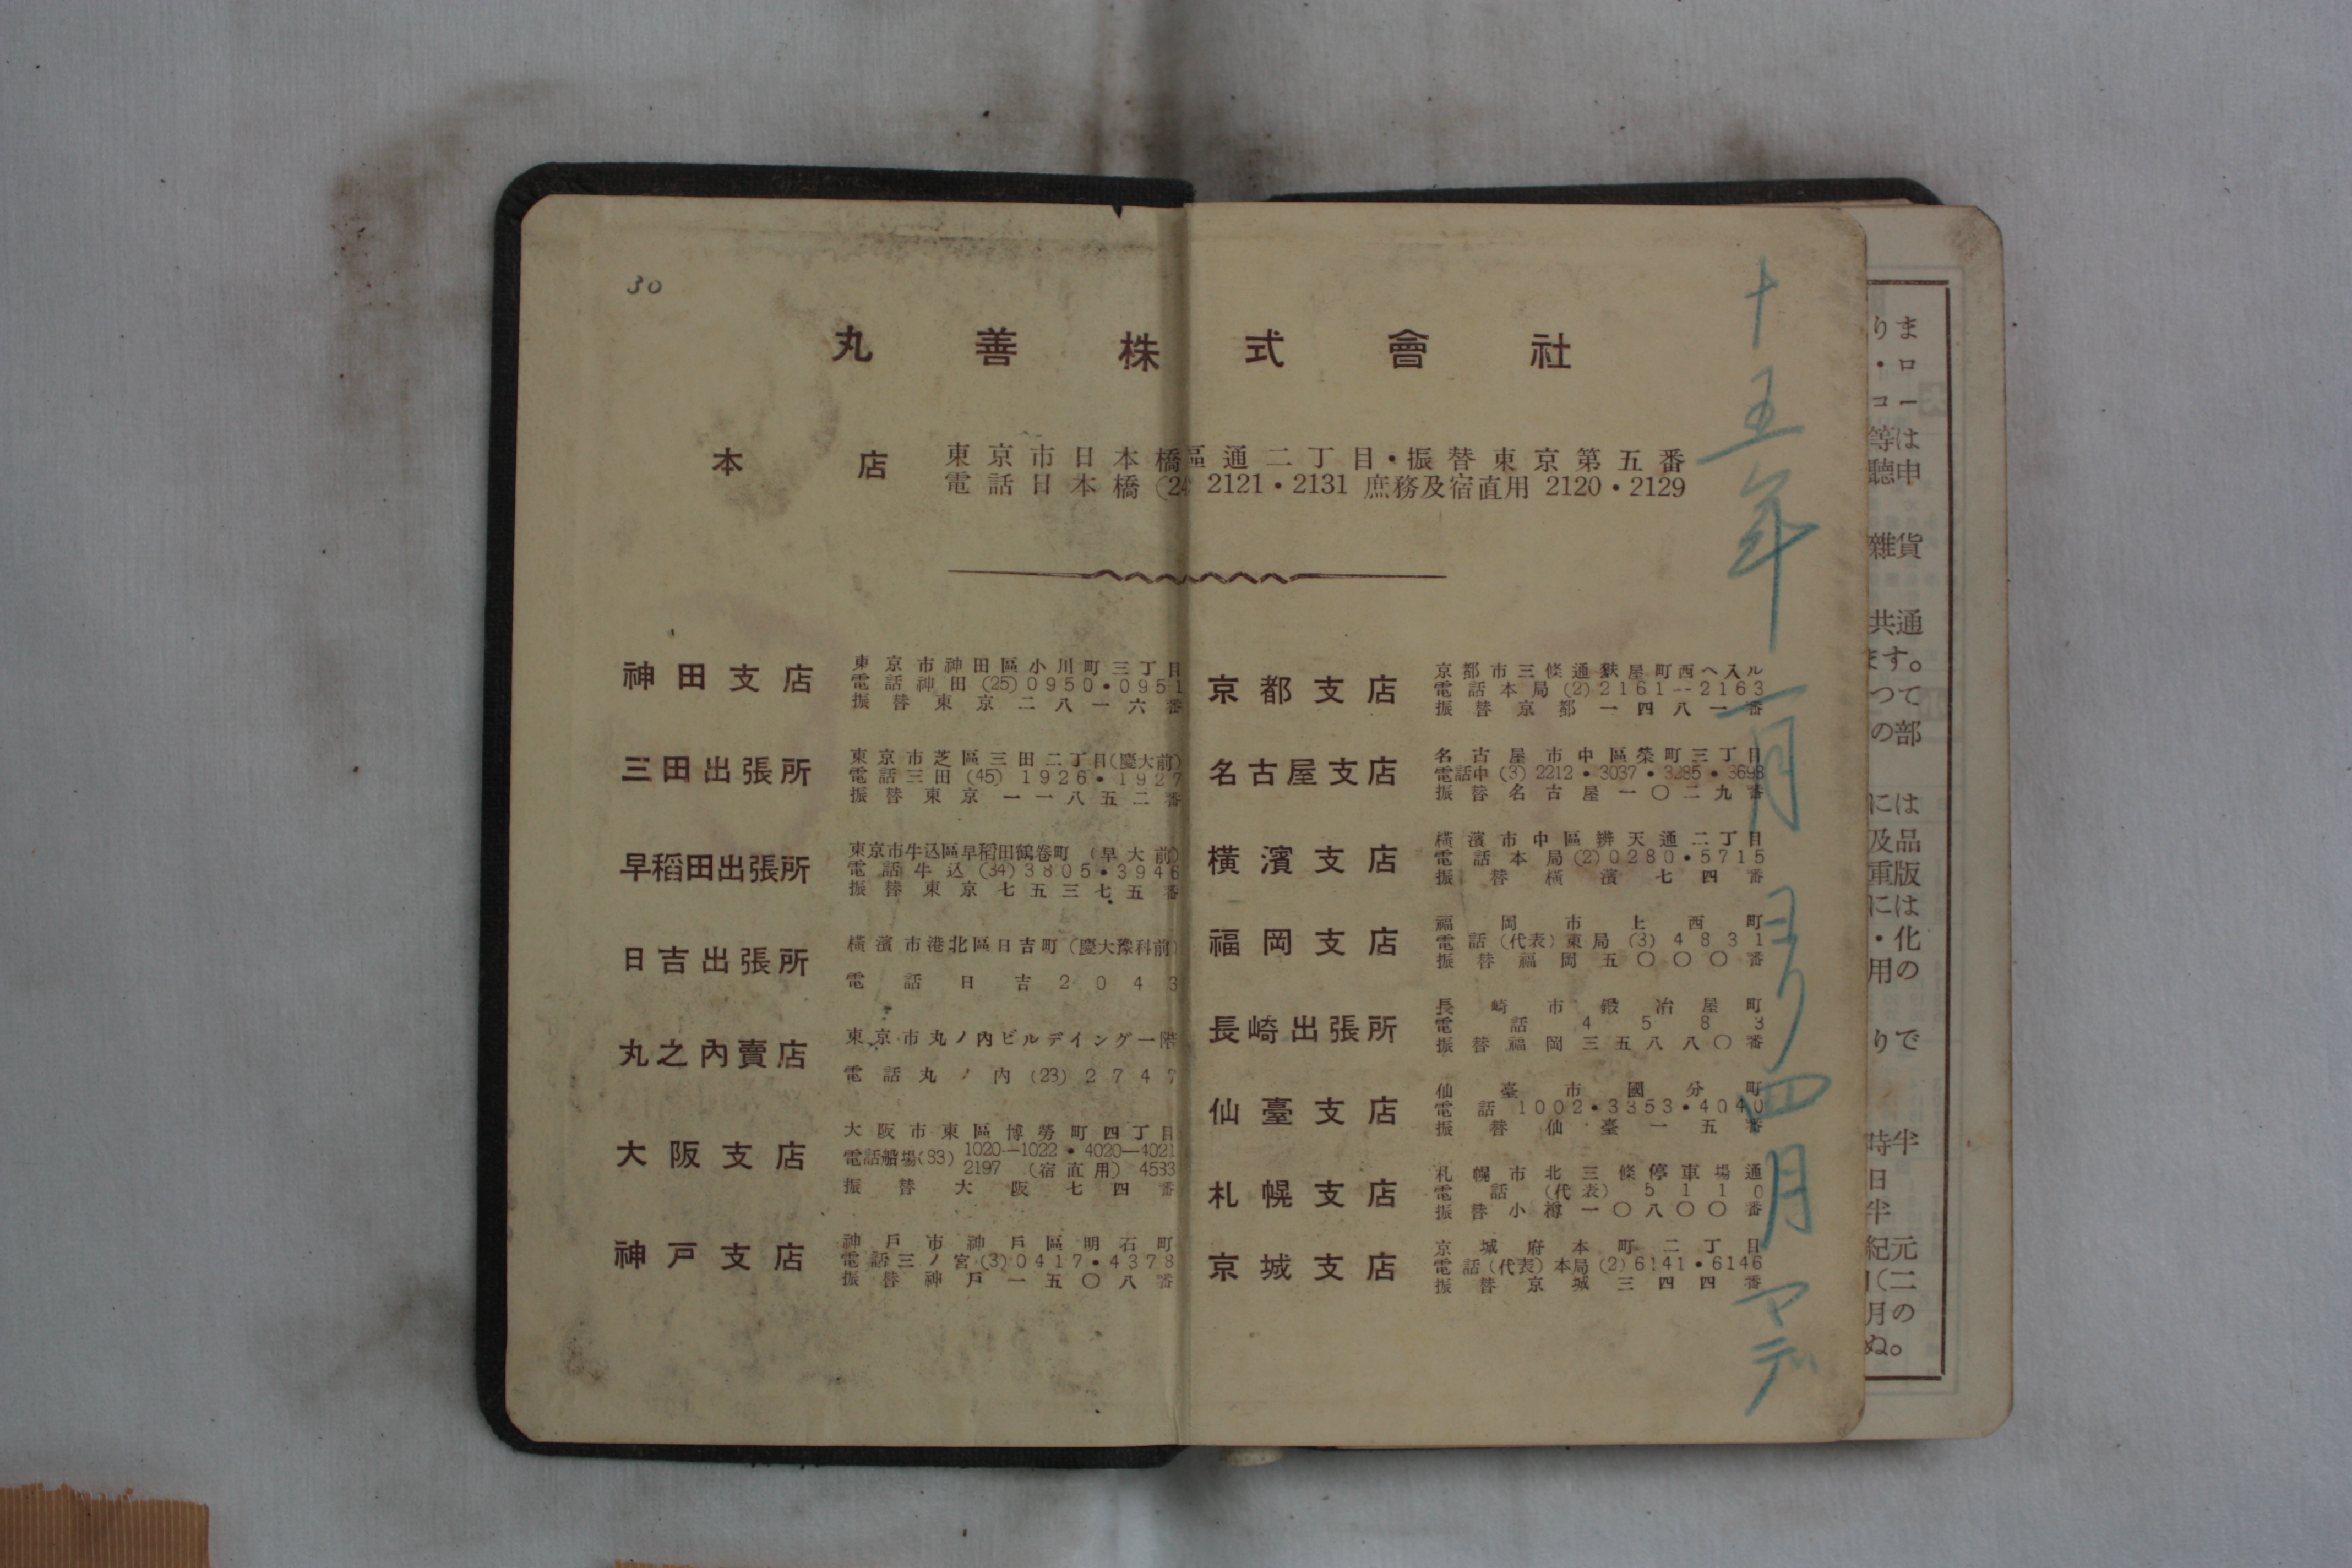 30
丸善株式會社
本店
東京市日本橋區通二丁目・振替東京第五番
電話日本橋(24 2121・2131 庶務及宿直用 2120・2129
神田支店
東京市神田區小川町三丁目
電話神田(25)0950・0951
振替東京二八一六番
三田出張所
東京市芝區三田二丁目(慶大前)
電話三田(45)1926・1927
振替東京一一八五二番
早稻田出張所
東京市牛込區早稻田鶴卷町(早大前)
電話牛込(34)3805・3946
振替東京七五三七五番
日吉出張所
橫濱市港北區日吉町(慶大豫科前)
電話日吉2043
丸之內賣店
東京市丸ノ內ビルデイング一階
電話丸ノ內(23)2747
大阪支店
大阪市東區博勞町四丁目
電話船場(83)1020—1022・4020—4021
2197(宿直用)4533
振替大阪七四番
神戶支店
神戶市神戶區明石町
電話三ノ宮(3)0417・4378
振替神戶一五〇八番
京都支店
京都市三條通麩屋町西ヘ入ル
電話本局(2)2161--2163
振替京都一四八一番
名古屋支店
名古屋市中區榮町三丁目
電話中(3)2212・3037・3285・3698
振替名古屋一〇二九番
橫濱支店
橫濱市中區辨天通二丁目
電話本局(2)0280・5715
振替橫濱七四番
福岡支店
福岡市上西町
電話(代表)東局(3)4831
振替福岡五〇〇〇番
長崎出張所
長崎市鍛冶屋町
電話4583
振替福岡三五八八〇番
仙臺支店
仙臺市國分町
電話1002・3353・4040
振替仙臺一五番
札幌支店
札幌市北三條停車場通
電話(代表)5110
振替小樽一〇八〇〇番
京城支店
京城府本町二丁目
電話(代表)本局(2)6141・6146
振替京城三四四番
十五年一月ヨリ四月マデ
りま
・ロ
コー
等は
聽申
雜貨
共通
ます。
つて
の部
には
及品
重版
には
・化
用の
りで
時半
日
半
紀元
(二
月の
ぬ。